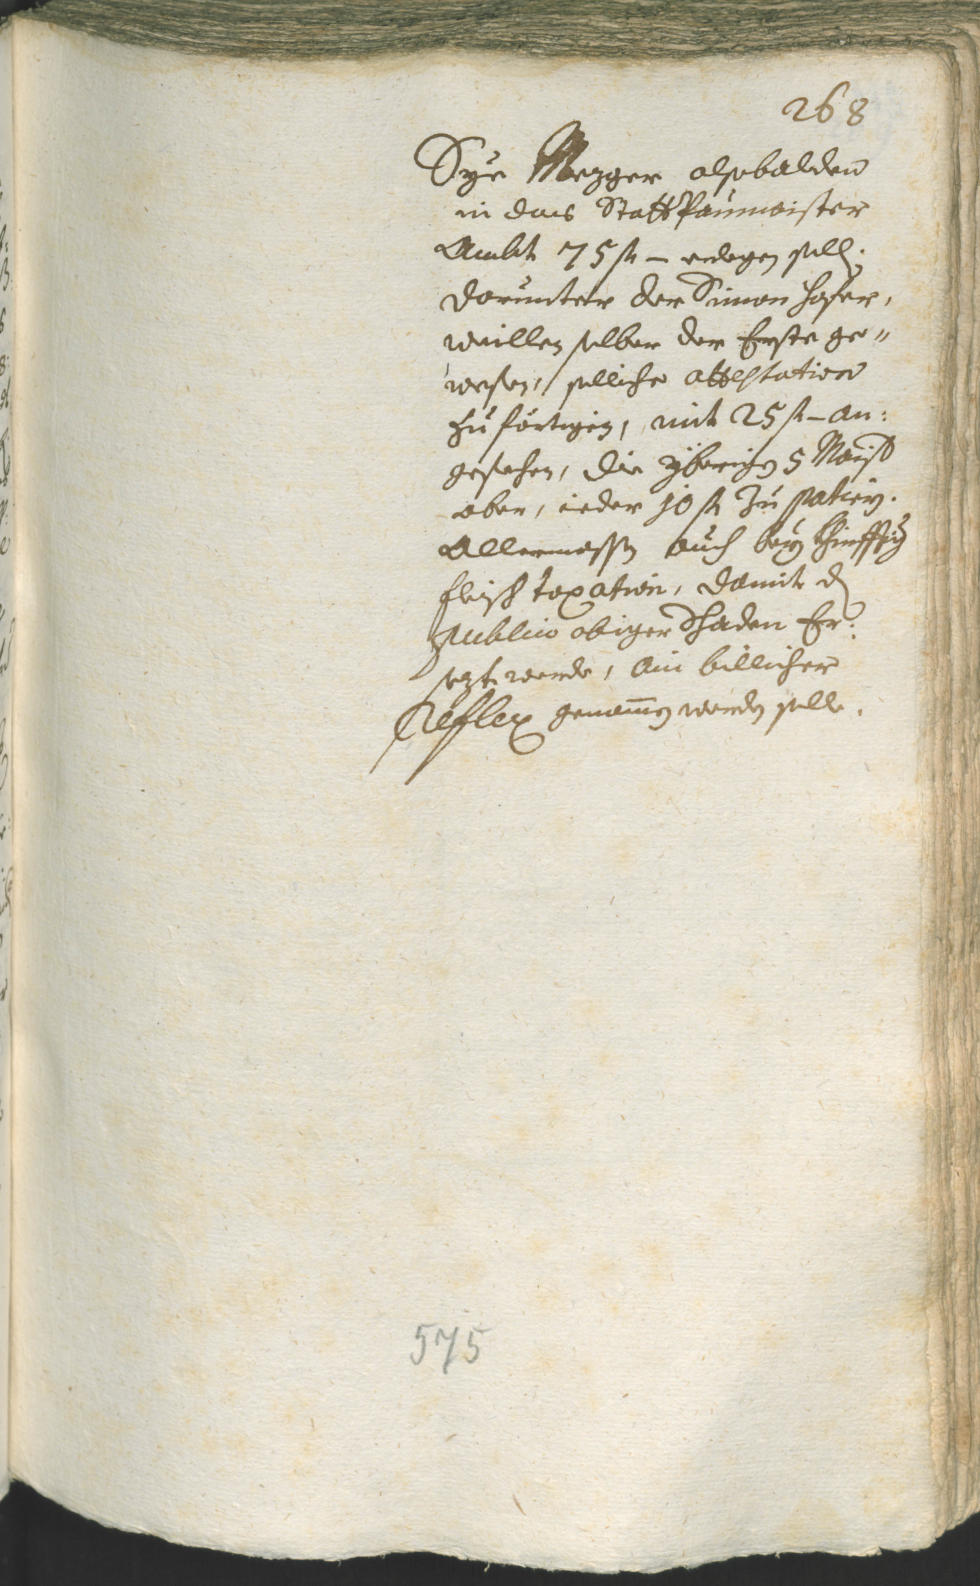 268
Sye Mezger alsobalden
in das Statt Paumaister
Ambt 75 fl – erlegen soll:
darunter der Simon Hofer,
weillen selber der Erste ge„
wesen, solliche attestation
zu förtigen, mit 25 fl – an:
gesehen, die yberigen 5 Maist
aber, ieder 10 fl zu
Allermassen auch bey khinfftig
fleisch taxation, damit d
publico obiger Schaden Er:
sezt werde, ain billicher
Reflex genommen werden solle.
575